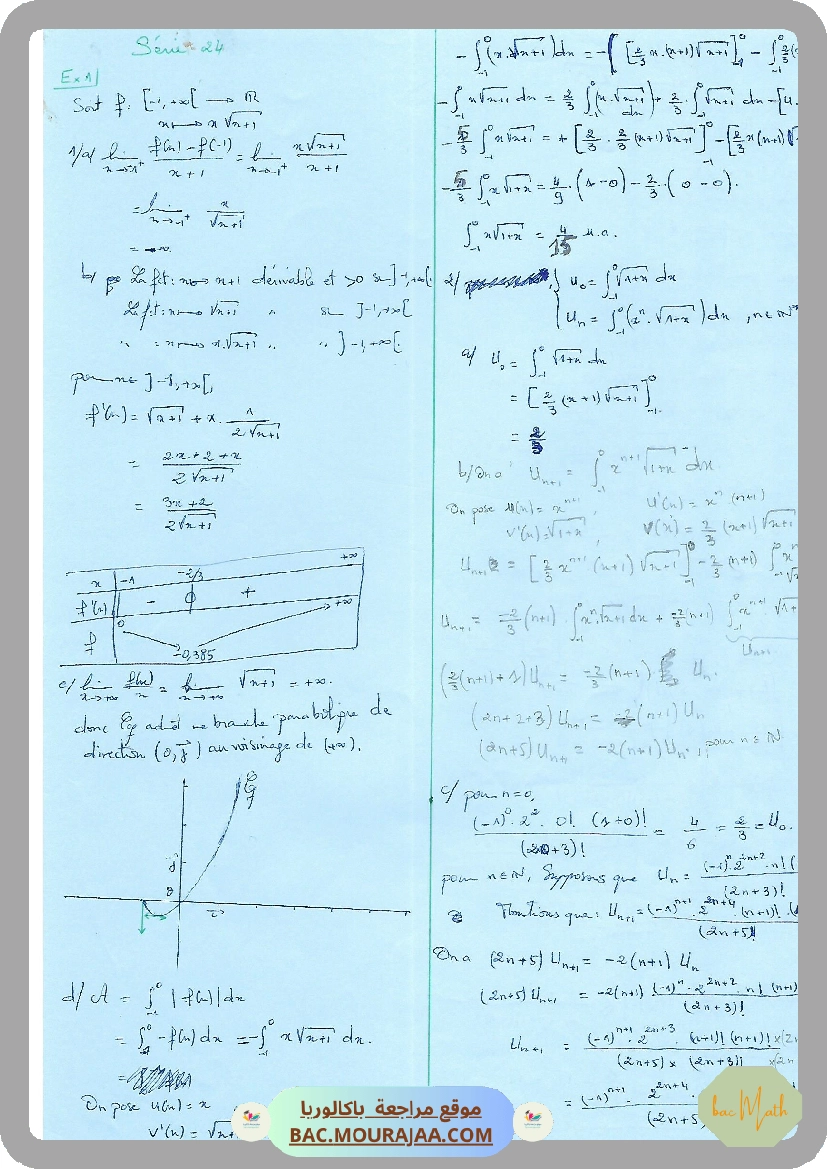 Série 24
Ex 1
Soit f: [-1,+∞[ → ℝ
x ↦ x√(x+1)
1/a/ lim_{x→-1⁺} (f(x) - f(-1))/(x+1) = lim_{x→-1⁺} x√(x+1)/(x+1)
= lim_{x→-1⁺} x/√(x+1)
= -∞.
b/ La fct: x ↦ x+1 dérivable et >0 sur ]-1,+∞[.
La fct: x ↦ √(x+1) " sur ]-1,+∞[
" " : x ↦ x.√(x+1) " " ]-1,+∞[.
pour x ∈ ]-1,+∞[,
f'(x) = √(x+1) + x . 1/(2√(x+1))
= (2x+2+x)/(2√(x+1))
= (3x+2)/(2√(x+1))
x -1 -2/3 +∞
f'(x) - 0 +
f 0 -0,385 +∞
c/ lim_{x→+∞} f(x)/x = lim_{x→+∞} √(x+1) = +∞.
donc Cf admet une branche parabolique de
direction (0,j) au voisinage de (+∞).
Cf
d/ A = ∫_{-1}^{0} |f(x)| dx
= ∫_{-1}^{0} -f(x) dx = -∫_{-1}^{0} x√(x+1) dx.
On pose u(x) = x
v'(x) = √x+
-∫_{-1}^{0} (x.√(x+1)) dx = -[ [2/3 x.(x+1)√(x+1)]_{-1}^{0} - ∫_{-1}^{0} 2/3 (
-∫_{-1}^{0} x√(x+1) dx = 2/3 ∫_{-1}^{0} (x.√(x+1)) dx + 2/3 . ∫_{-1}^{0} √(x+1) dx - [
-5/3 ∫_{-1}^{0} x√(1+x) = + [2/3 . 2/3 (x+1)√(x+1)]_{-1}^{0} - [2/3 x(x+1)
-5/3 ∫_{-1}^{0} x√(1+x) = 4/9 . (1-0) - 2/3 . (0-0).
∫_{-1}^{0} x√(1+x) = 4/15 u.a.
2/ { U₀ = ∫_{-1}^{0} √(1+x) dx
{ Uₙ = ∫_{-1}^{0} (xⁿ . √(1+x)) dx, n ∈ ℕ*
a/ U₀ = ∫_{-1}^{0} √(1+x) dx
= [2/3 (x+1)√(x+1)]_{-1}^{0}
= 2/3
b/ On a : U_{n+1} = ∫_{-1}^{0} x^{n+1} √(1+x) dx
On pose u(x) = x^{n+1}, u'(x) = xⁿ (n+1)
v'(x) = √(1+x), v(x) = 2/3 (x+1)√(x+1)
U_{n+1} = [2/3 x^{n+1} (x+1) √(x+1)]_{-1}^{0} - 2/3 (n+1) ∫_{-1}^{0} xⁿ
U_{n+1} = -2/3 (n+1) . ∫_{-1}^{0} xⁿ.√(x+1) dx + -2/3 (n+1) ∫_{-1}^{0} x^{n+1} √(1+
U_{n+1}
(2/3 (n+1) + 1) U_{n+1} = -2/3 (n+1) Uₙ.
(2n+2+3) U_{n+1} = -2(n+1) Uₙ
(2n+5) U_{n+1} = -2(n+1) Uₙ, pour n ∈ ℕ
c/ pour n=0,
((-1)⁰ . 2² . 0! (1+0)!)/((2·0+3)!) = 4/6 = 2/3 = U₀.
pour n ∈ ℕ, Supposons que Uₙ = ((-1)ⁿ . 2^{2n+2} . n! ()/((2n+3)!)
Montrons que : U_{n+1} = ((-1)^{n+1} . 2^{2n+4} . (n+1)! . ()/((2n+5)!)
On a (2n+5) U_{n+1} = -2(n+1) Uₙ
(2n+5) U_{n+1} = -2(n+1) ((-1)ⁿ . 2^{2n+2} . n! (n+1))/((2n+3)!)
U_{n+1} = ((-1)^{n+1} . 2^{2n+3} . (n+1)! (n+1)! x(2n)/((2n+5) x (2n+3)! x(2n)
= ((-1)^{n+1} . 2^{2n+4} .)/((2n+5)
موقع مراجعة باكالوريا
BAC.MOURAJAA.COM
bac Math